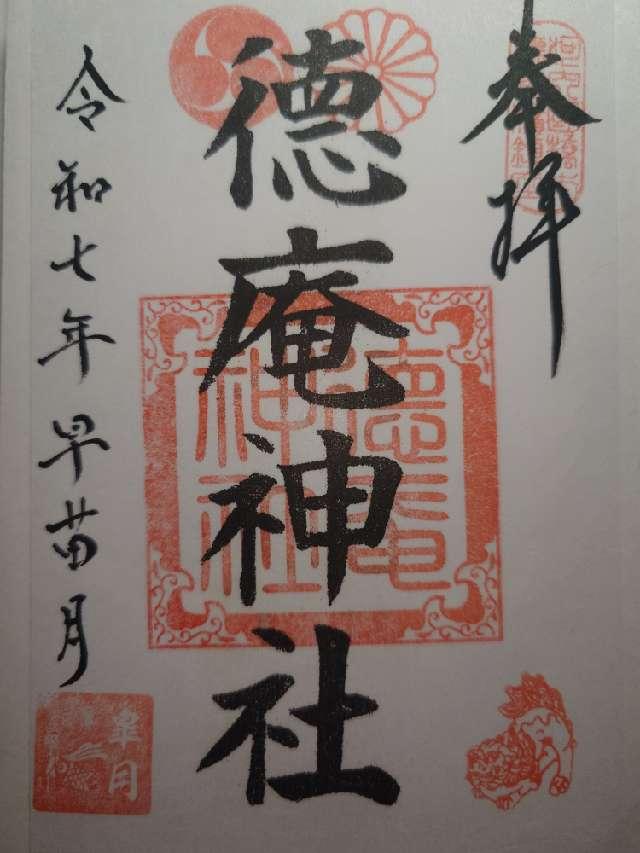 奉拝
徳庵神社
徳庵神社
令和七年早苗月
皐月